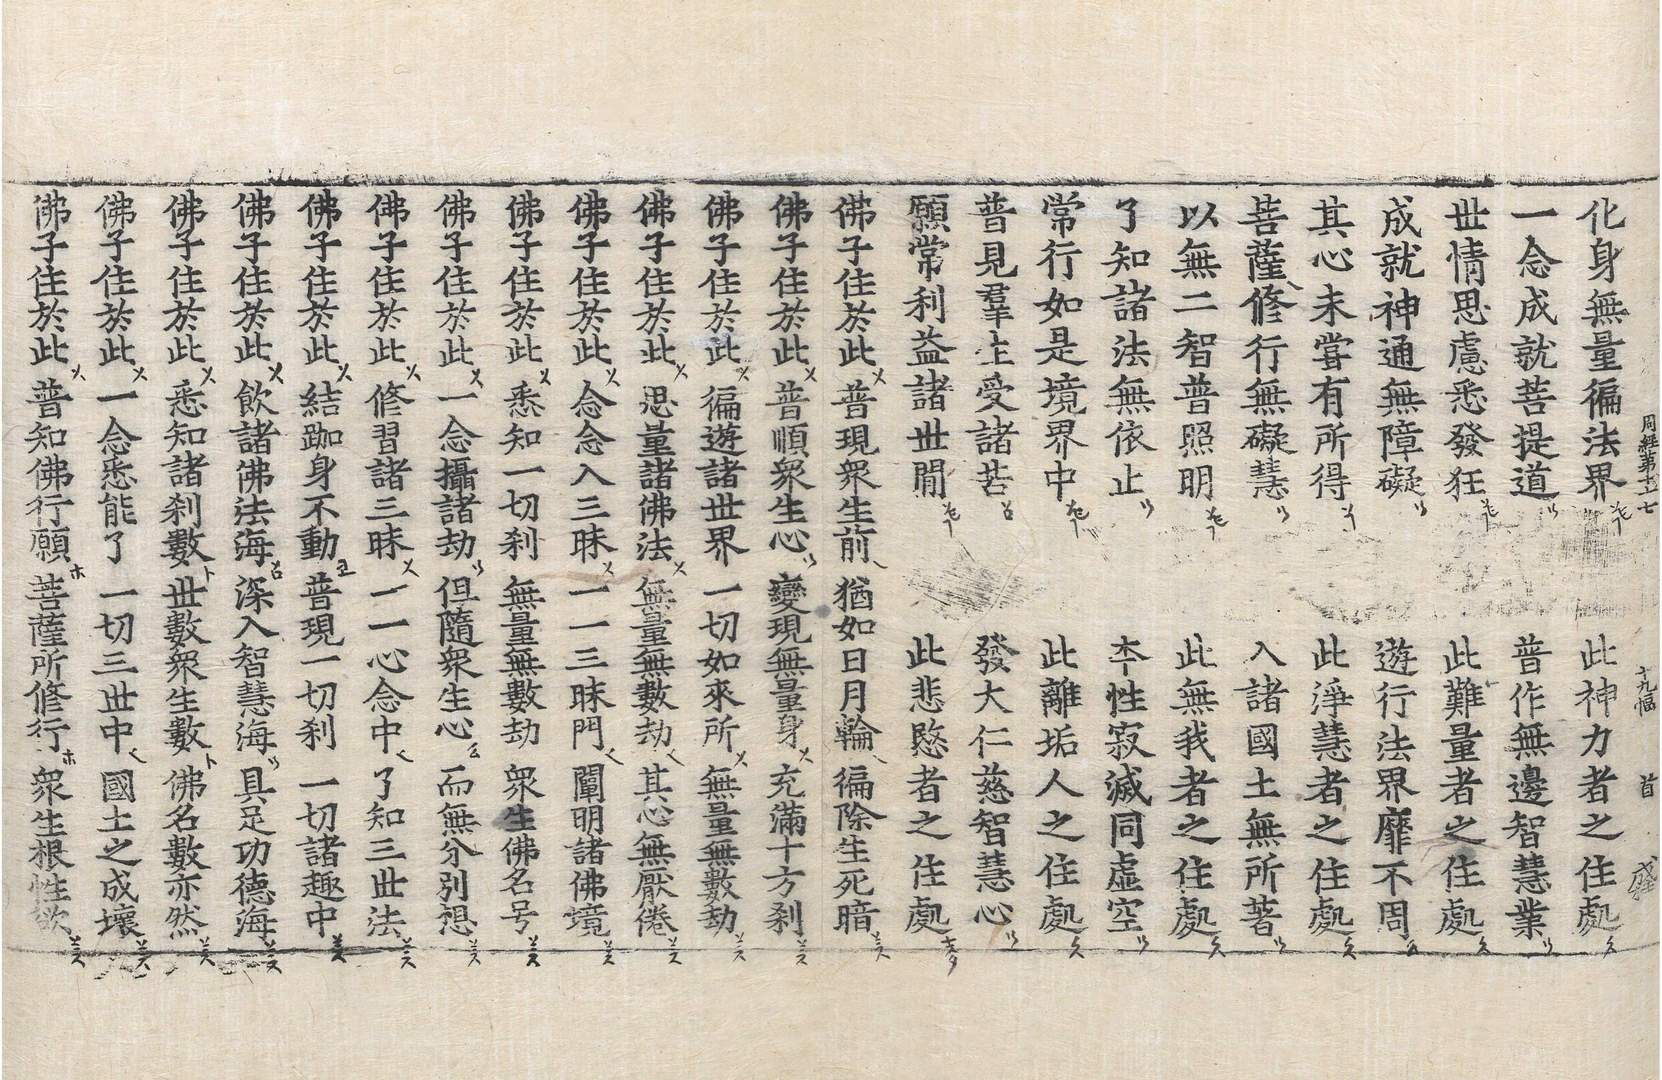 周經第十七
十九幅
首
化身無量徧法界 此神力者之住處
一念成就菩提道 普作無邊智慧業
世情思慮悉發狂 此難量者之住處
成就神通無障礙 遊行法界靡不周
其心未嘗有所得 此淨慧者之住處
菩薩修行無礙慧 入諸國土無所著
以無二智普照明 此無我者之住處
了知諸法無依止 本性寂滅同虛空
常行如是境界中 此離垢人之住處
普見羣生受諸苦 發大仁慈智慧心
願常利益諸世間 此悲愍者之住處
佛子住於此 普現衆生前 猶如日月輪 徧除生死暗
佛子住於此 普順衆生心 變現無量身 充滿十方刹
佛子住於此 徧遊諸世界 一切如來所 無量無數劫
佛子住於此 思量諸佛法 無量無數劫 其心無厭倦
佛子住於此 念念入三昧 一一三昧門 闡明諸佛境
佛子住於此 悉知一切刹 無量無數劫 衆生佛名号
佛子住於此 一念攝諸劫 但隨衆生心 而無分別想
佛子住於此 修習諸三昧 一一心念中 了知三世法
佛子住於此 結跏身不動 普現一切刹 一切諸趣中
佛子住於此 飲諸佛法海 深入智慧海 具足功德海
佛子住於此 悉知諸刹數 世數衆生數 佛名數亦然
佛子住於此 一念悉能了 一切三世中 國土之成壞
佛子住於此 普知佛行願 菩薩所修行 衆生根性欲